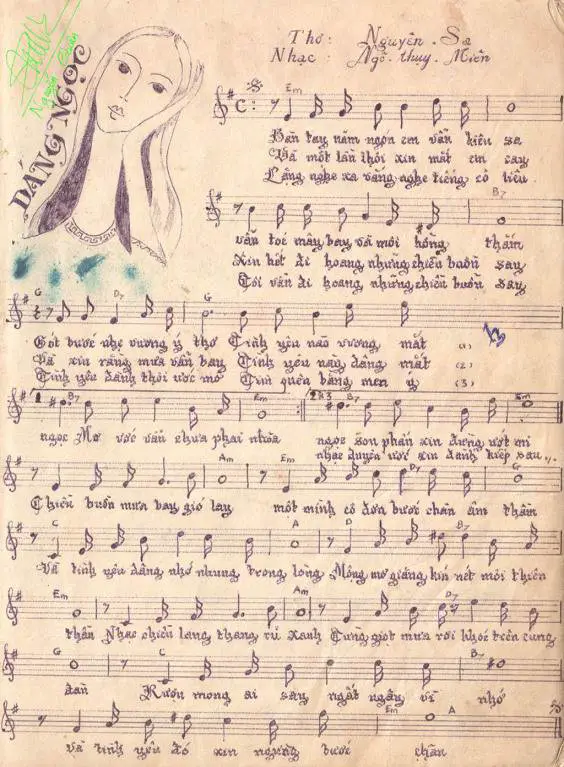 Thơ : Nguyên . Sa
Nhạc : Ngô . thụy . Miên
DÁNG NGỌC
C
Em
Bàn tay năm ngón em vẫn kiêu sa
Và một lần thôi xin mắt em cay
Lặng nghe xa vắng nghe tiếng cô liêu .
B7
vẫn toé mây bay và môi hồng thắm
Xin hết đi hoang những chiều buồn say
Tôi vẫn đi hoang những chiều buồn say
G D7 G
Gót bước nhẹ vương ý thơ Tình yêu nào vương mắt (1)
Và xin rằng mưa vẫn bay Tình yêu này dâng mắt (2)
Tình yêu đành thôi ước mơ Tìm quên bằng men ý (3)
1 B7 Em 2&3 B7 Em
ngọc Mơ vóc vẫn chưa phai nhòa ngọc son phấn xin đừng ướt mi
nhạc duyên ước xin dành kiếp sau
Am Em D7 G
Chiều buồn mưa bay gió lay một mình cô đơn bước chân âm thầm
C A D B7
Và tình yêu dâng nhớ nhung trong lòng Mộng mơ giăng kín nét môi thiên
Em Am D7
thần Nhạc chiều lang thang rũ xanh Từng giọt mưa rơi khóc trên cung
G C B7
đàn Rượu mong ai say ngất ngây về nhớ
Em A
Và tình yêu đó xin ngừng bước chân